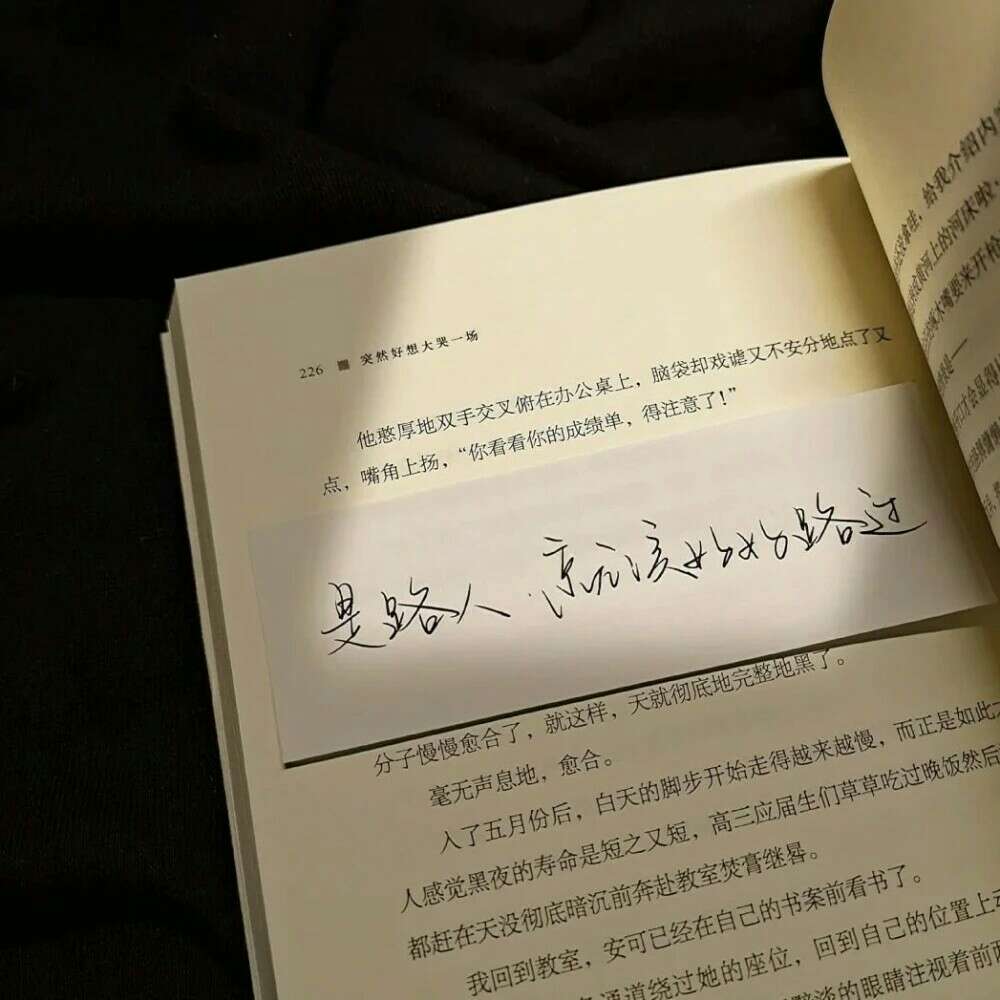 226 突然好想大哭一场
他憨厚地双手交叉俯在办公桌上，脑袋却戏谑又不安分地点了又
点，嘴角上扬，“你看看你的成绩单，得注意了！”
是路人 就应该好好路过
分子慢慢愈合了，就这样，天就彻底地完整地黑了。
毫无声息地，愈合。
入了五月份后，白天的脚步开始走得越来越慢，而正是如此
人感觉黑夜的寿命是短之又短，高三应届生们草草吃过晚饭然后
都赶在天没彻底暗沉前奔赴教室焚膏继晷。
我回到教室，安可已经在自己的书案前看书了。
通道绕过她的座位，回到自己的位置上
黯淡的眼睛注视着前两
给我介绍内
成黄河上的河床啦
大嘴要来开枪
才会显得